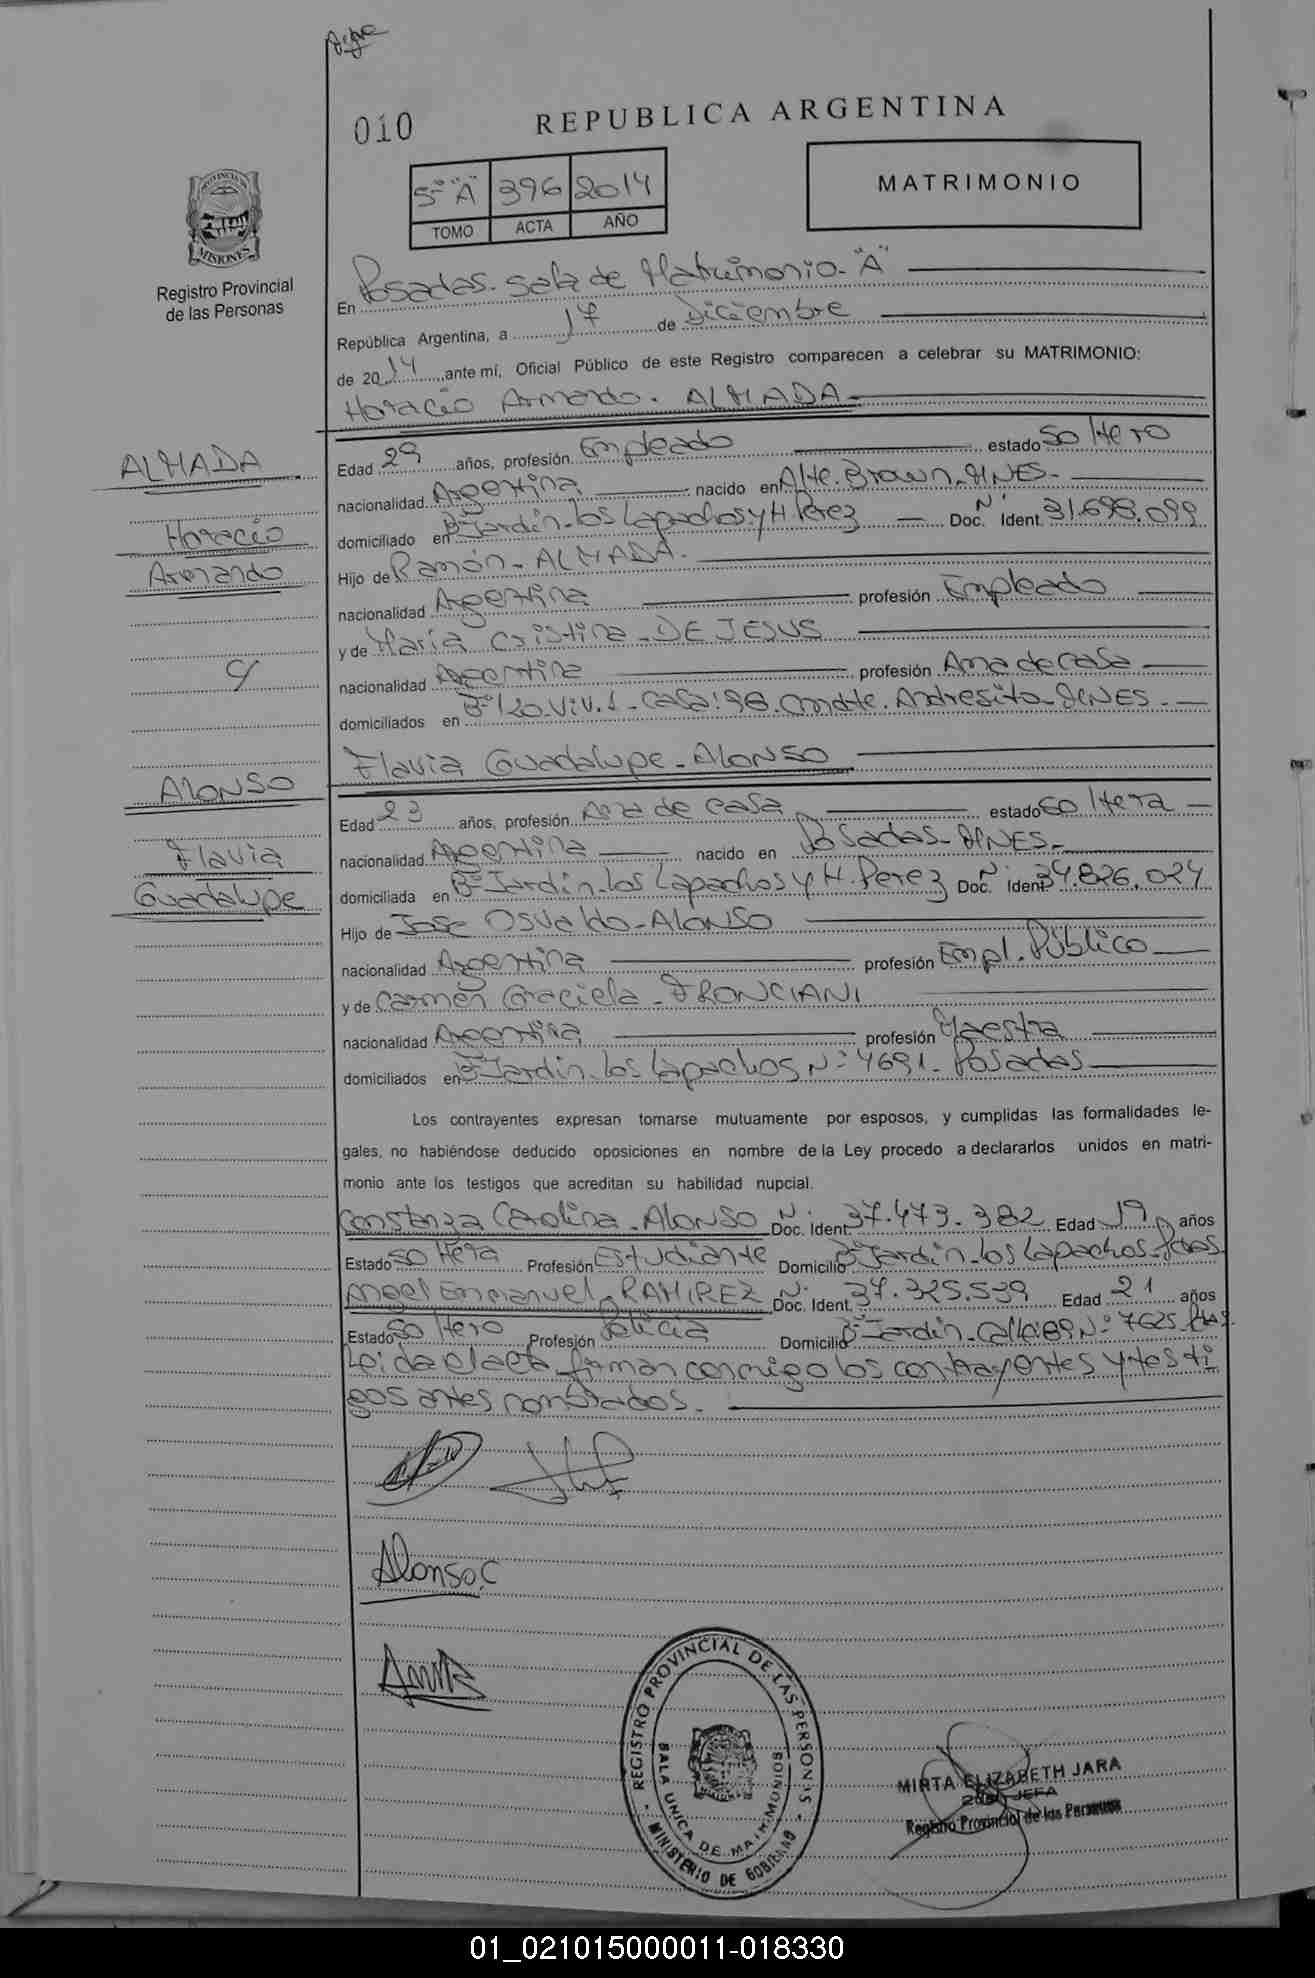 010
REPUBLICA ARGENTINA
5º "A" 396 2014
TOMO ACTA AÑO
MATRIMONIO
PROVINCIA DE
MISIONES
Registro Provincial
de las Personas
En Posadas. Sala de Matrimonio. "A"
República Argentina, a 17 de Diciembre
de 2014, ante mí, Oficial Público de este Registro comparecen a celebrar su MATRIMONIO:
Horacio Armando. ALMADA
ALMADA
Horacio
Armando
C/
ALONSO
Flavia
Guadalupe
Edad 29 años, profesión Empleado estado Soltero
nacionalidad Argentina nacido en Alte. Brown. MNES.
domiciliado en Bº Jardín. los Lapachos y H Perez Doc. Ident. Nº 31.698.099
Hijo de Ramón. ALMADA.
nacionalidad Argentina profesión Empleado
y de María Cristina. DE JESUS
nacionalidad Argentina profesión Ama de casa
domiciliados en Bº 120. Viv. 1. casa: 96. Cmdte. Andresito. MNES.
Flavia Guadalupe. ALONSO
Edad 23 años, profesión Ama de casa estado Soltera
nacionalidad Argentina nacido en Posadas. MNES.
domiciliada en Bº Jardín. los Lapachos y H. Perez Doc. Ident. Nº 34.826.024
Hijo de José Osvaldo. ALONSO
nacionalidad Argentina profesión Empl. Público
y de Carmen Graciela. FRONCIANI
nacionalidad Argentina profesión Maestra
domiciliados en Bº Jardín. los Lapachos Nº 4691. Posadas
Los contrayentes expresan tomarse mutuamente por esposos, y cumplidas las formalidades le-
gales, no habiéndose deducido oposiciones en nombre de la Ley procedo a declararlos unidos en matri-
monio ante los testigos que acreditan su habilidad nupcial.
Constanza Carolina. ALONSO Doc. Ident. Nº 37.473.382 Edad 19 años
Estado Soltera Profesión Estudiante Domicilio Bº Jardín. los Lapachos. Pdas.
Angel Emmanuel. RAMIREZ Doc. Ident. Nº 37.325.539 Edad 21 años
Estado Soltero Profesión Policía Domicilio Bº Jardín. Calle: 89 Nº 7625. Pdas.
Leída el acta firman conmigo los contrayentes y testi
gos antes nombrados.
Alonso, C
REGISTRO PROVINCIAL DE LAS PERSONAS
SALA UNICA DE MATRIMONIOS
MINISTERIO DE GOBIERNO
MIRTA ELIZABETH JARA
2da JEFA
Registro Provincial de las Personas
01_021015000011-018330